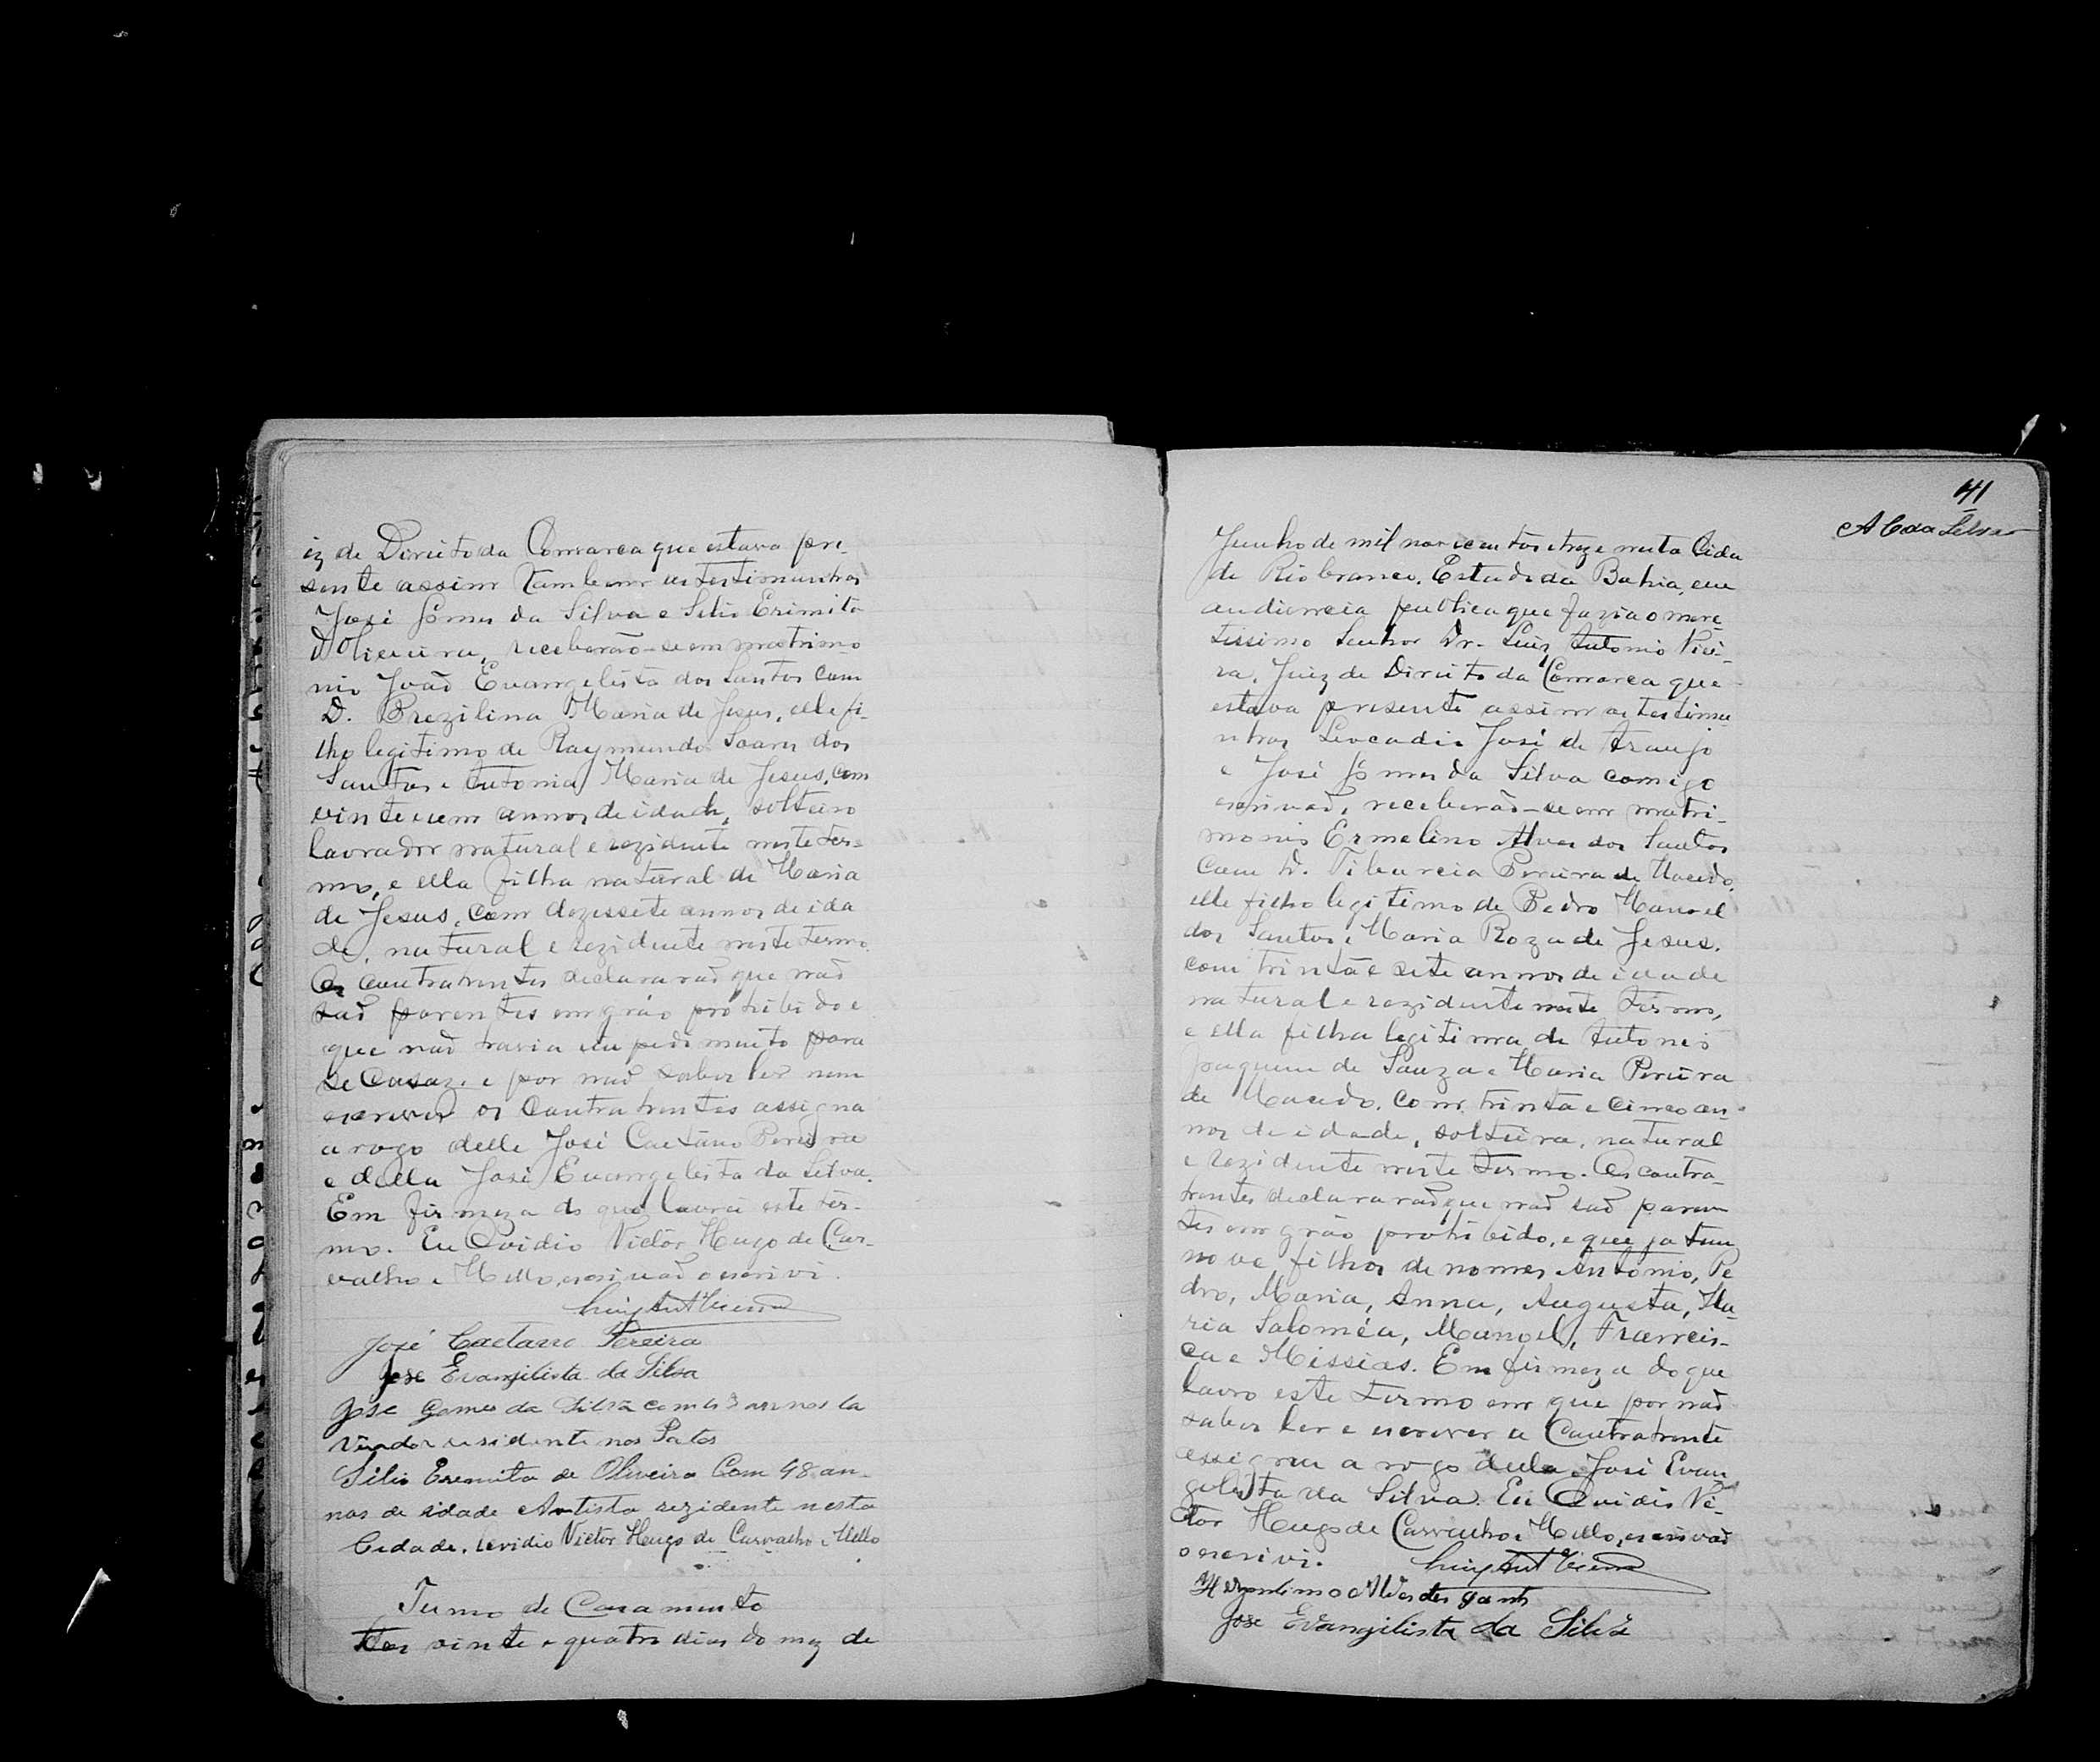 iz de Direito da Comarca que estava pre-
sente assim tambem as testimunhas
José Gomes da Silva e Silio Erimita
d'Oliveira, receberão-se em matrimo
nio João Evangelista dos Santos com
D. Brezilina Maria de Jesus, elle fi-
lho legitimo de Raymundo Soares dos
Santos e Antonia Maria de Jesus, com
vinte e um annos de idade, solteiro
lavrador natural e rezidente neste ter-
mo, e ella filha natural de Maria
de Jesus, com dezessete annos de ida
de, natural e rezidente neste termo.
Os contrahentes declararaõ que naõ
saõ parentes em gráo prohibido e
que naõ havia impedimento para
se casar. e por naõ saber ler nem
escrever os contrahentes assigna
a rogo delle José Caetano Pereira
e della José Evangelista da Silva.
Em firmeza do que lavrei este ter-
mo. Eu Ovidio Victor Hugo de Car-
valho e Mello, escrivaõ o escrivi.
Luiz Ant Vieira
José Caetano Pereira
Jose Evangilista da Silva
Jose Gomes da Silva com annos la
vrador residente nos Patos
Silio Eremita de Oliveira Com 48 an-
nos de idade Artista rezidente nesta
Cidade. Ovidio Victor Hugo de Carvalho e Mello
Termo de Casamento
Aos vinte e quatro dias do mez de
41
Junho de mil novicentos e treze nesta Cida
de Riobranco, Estado da Bahia, em
audiencia publica que fazia o mere-
tissimo Senhor Dr. Luiz Antonio Viei-
ra, Juiz de Direito da Comarca que
estava presente assim as testimu-
nhas Leocadio José de Araujo
e José Gomes da Silva comigo
escrivaõ, receberaõ-se em matri-
monio Ermelino Alves dos Santos
com D. Tiburcia Pereira de Macedo,
elle filho legitimo de Pedro Manoel
dos Santos e Maria Roza de Jesus,
com trinta e sete annos de idade
natural e rezidente neste termo,
e ella filha legitima de Antonio
Joaquim de Souza e Maria Pereira
de Macedo, com trinta e cinco an-
nos de idade, solteira, natural
e rezidente neste termo. Os contra-
hentes declararaõ que naõ saõ paren
tes em gráo prohibido, e que ja tem
nove filhos de nomes Antonio, Pe
dro, Maria, Anna, Augusta, Ma
ria Saloméa, Manoel, Francis-
ca e Missias. Em firmeza do que
lavro este termo em que por naõ
saber ler e escrever a Contrahente
assigna a rogo della José Evan
gelista da Silva. Eu Ovidio Vi-
ctor Hugo de Carvalho e Mello, escrivaõ
o escrivi. Luiz Ant Vieira
Alves dos
Jose Evangilista da Silva